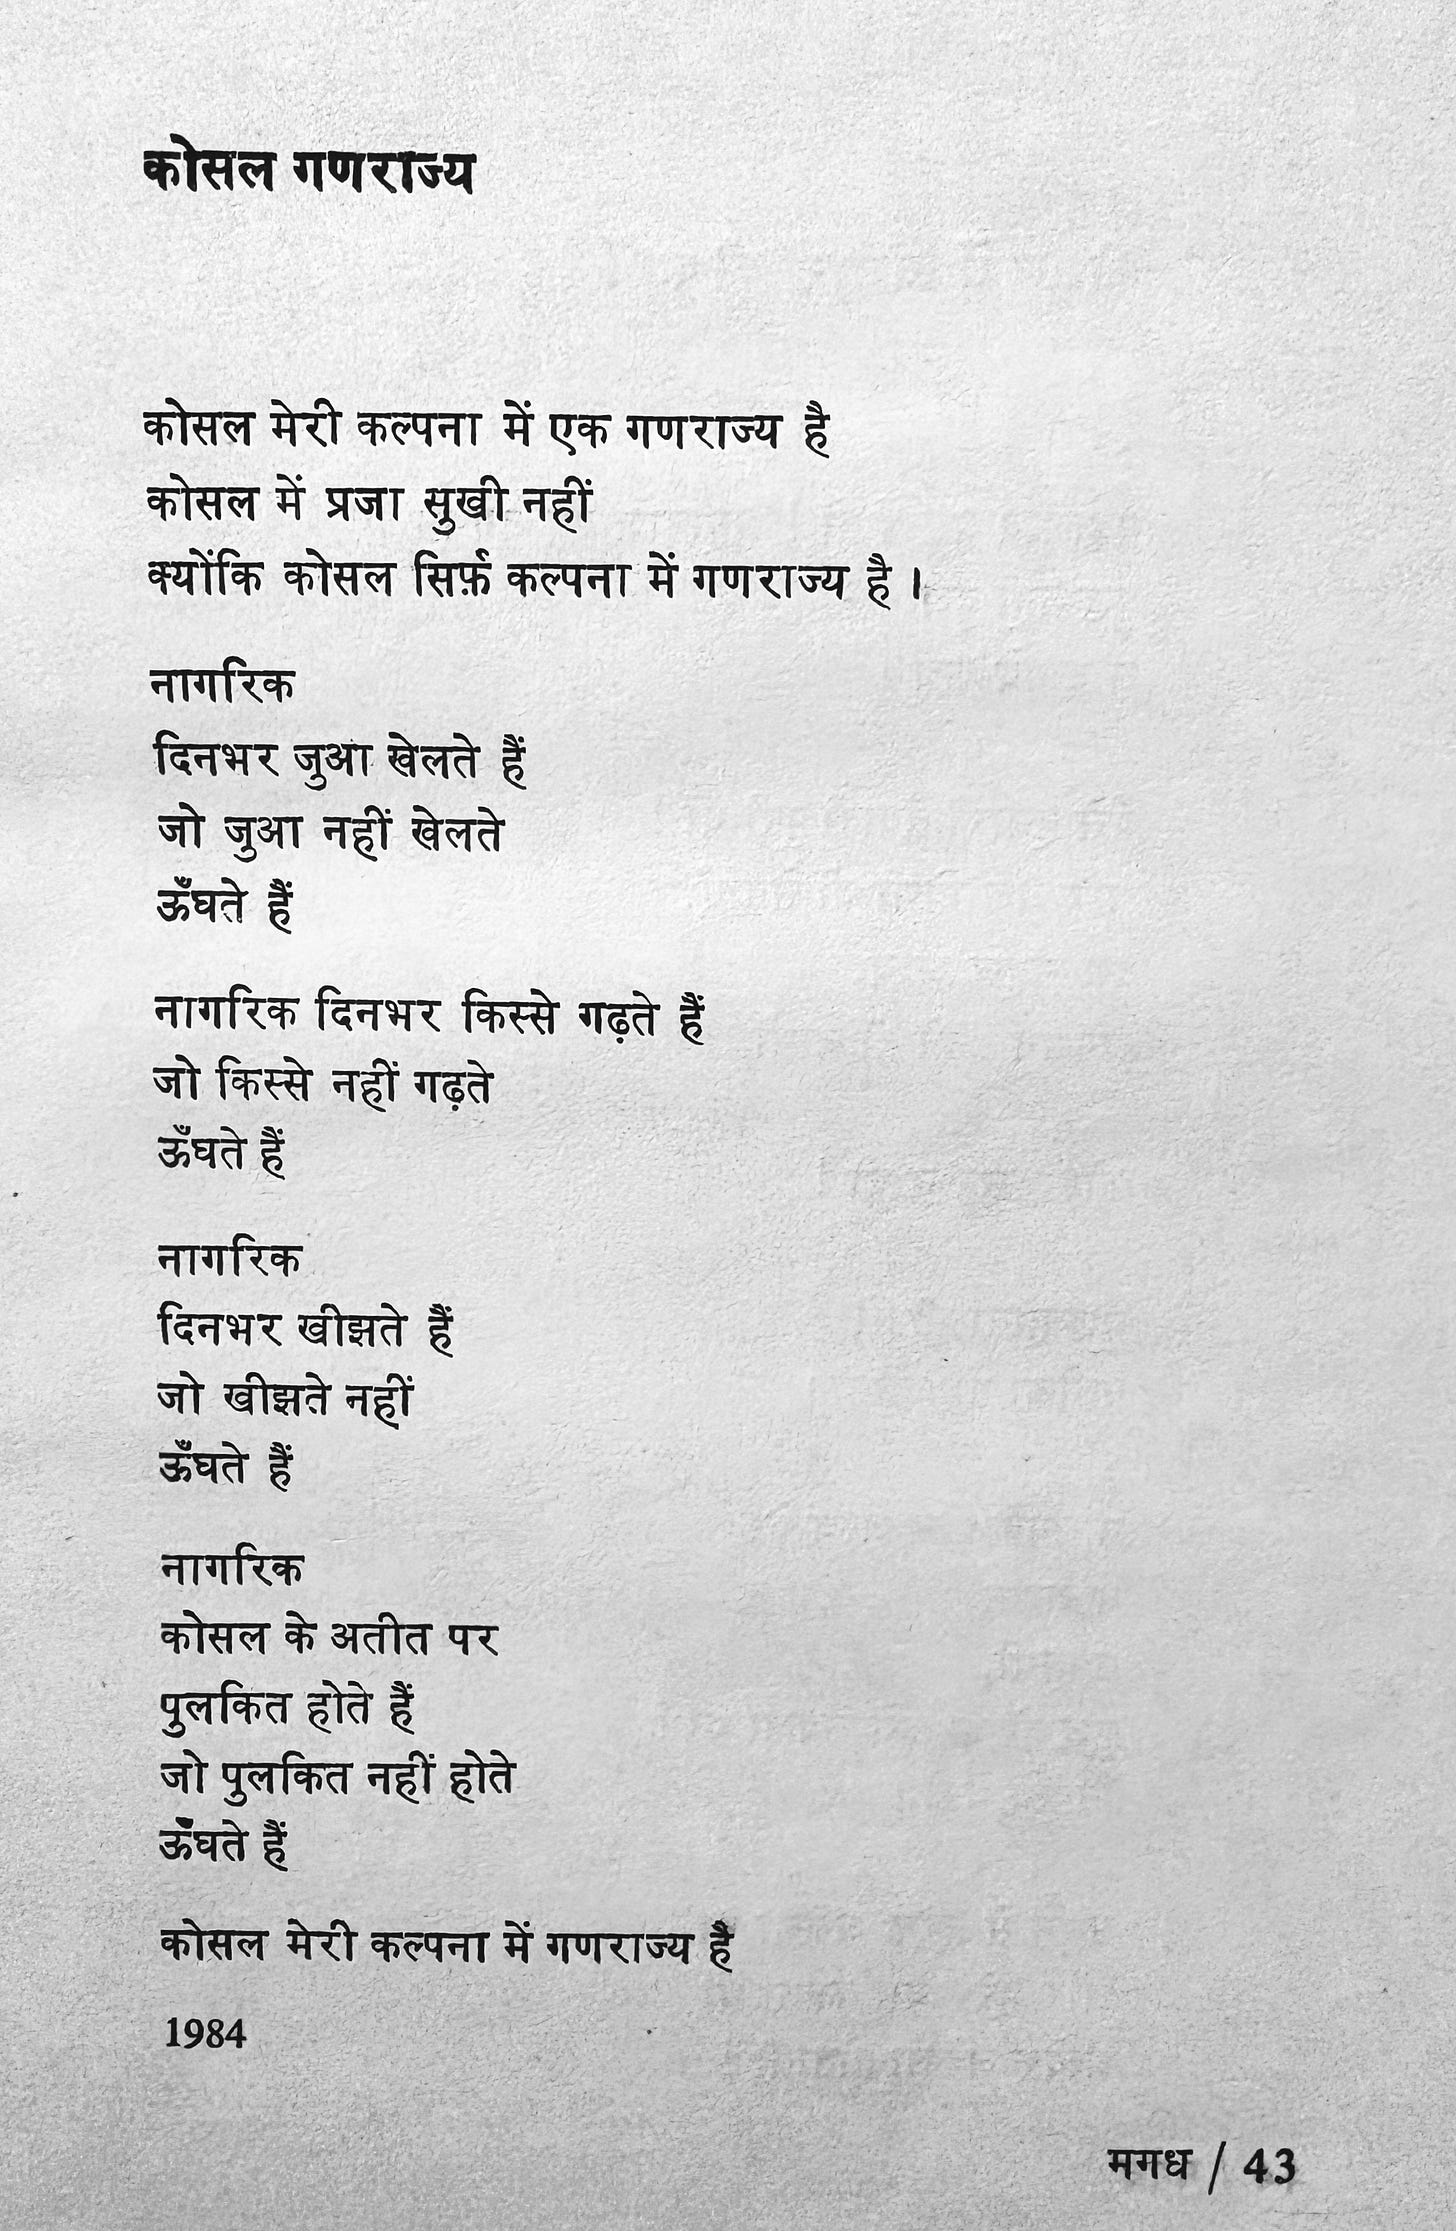 कोसल गणराज्य
कोसल मेरी कल्पना में एक गणराज्य है
कोसल में प्रजा सुखी नहीं
क्योंकि कोसल सिर्फ़ कल्पना में गणराज्य है ।
नागरिक
दिनभर जुआ खेलते हैं
जो जुआ नहीं खेलते
ऊँघते हैं
नागरिक दिनभर किस्से गढ़ते हैं
जो किस्से नहीं गढ़ते
ऊँघते हैं
नागरिक
दिनभर खीझते हैं
जो खीझते नहीं
ऊँघते हैं
नागरिक
कोसल के अतीत पर
पुलकित होते हैं
जो पुलकित नहीं होते
ऊँघते हैं
कोसल मेरी कल्पना में गणराज्य है
1984
मगध / 43